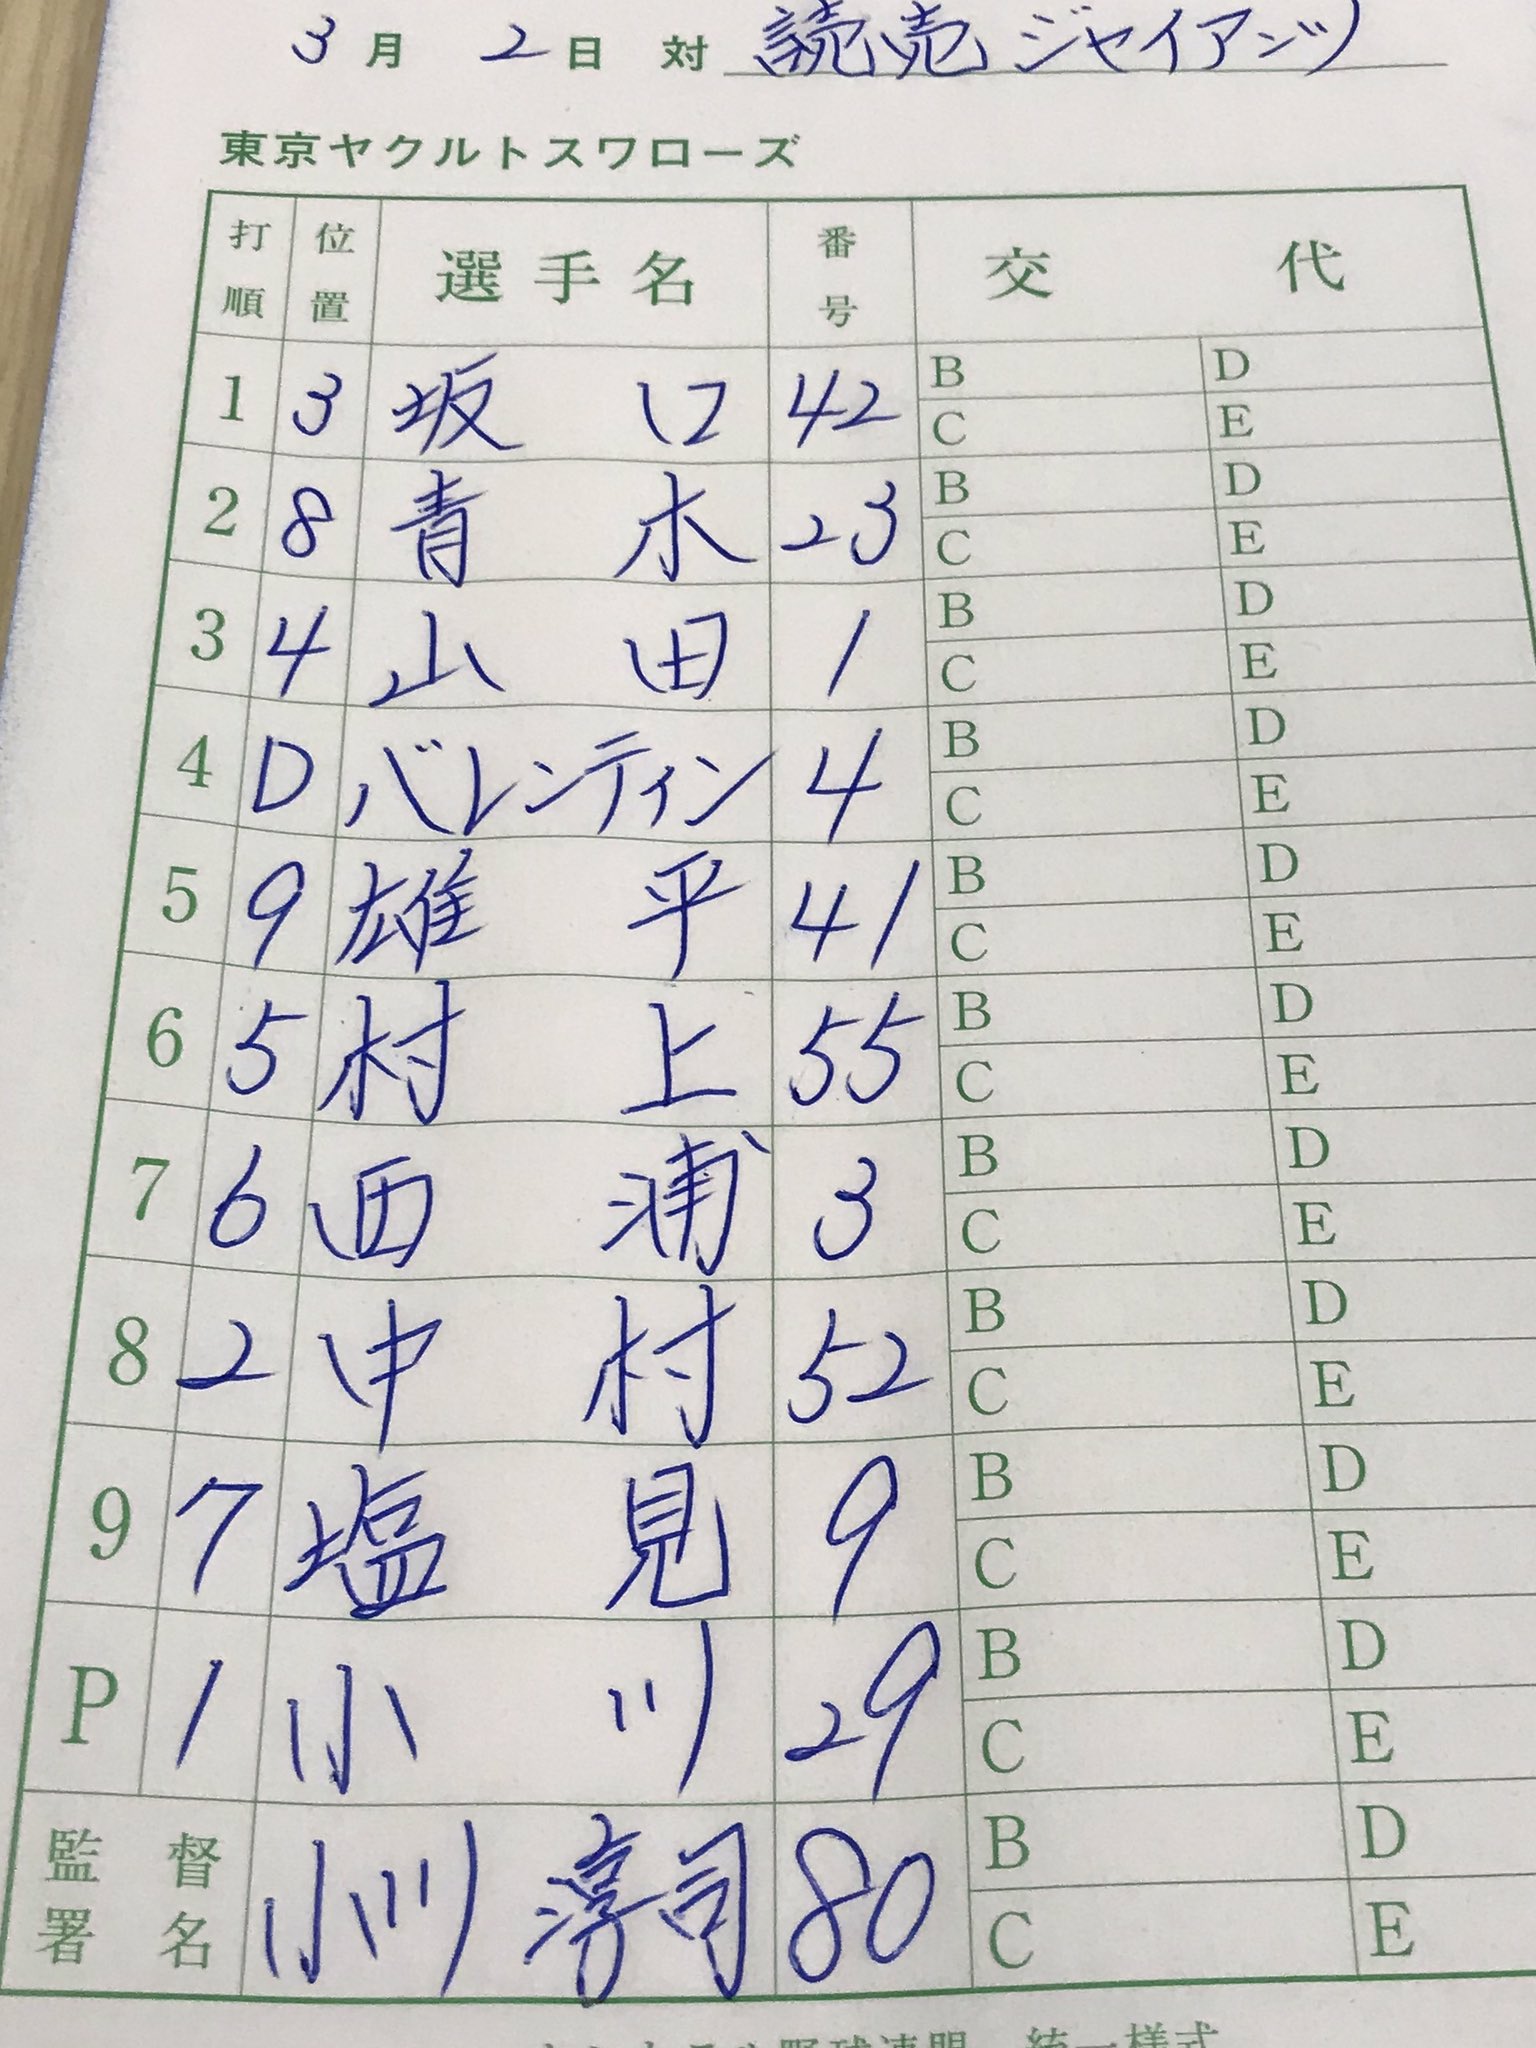 3月 2日 対 読売ジャイアンツ
東京ヤクルトスワローズ
打順 位置 選手名 番号 交代
1 3 坂口 42 B D
C E
2 8 青木 23 B D
C E
3 4 山田 1 B D
C E
4 D バレンティン 4 B D
C E
5 9 雄平 41 B D
C E
6 5 村上 55 B D
C E
7 6 西浦 3 B D
C E
8 2 中村 52 B D
C E
9 7 塩見 9 B D
C E
P 1 小川 29 B D
C E
監督署名 小川淳司 80 B D
C E
野球連盟 統一様式